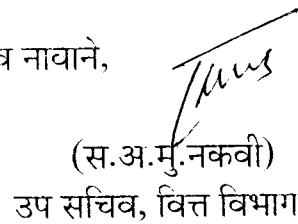 व नावाने,
(स.अ.मु.नकवी)
उप सचिव, वित्त विभाग